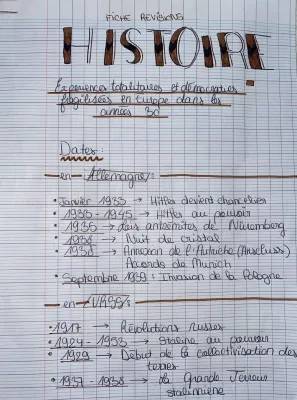 FICHE REVISIONS
HISTOIRE
Expériences totalitaires et démocraties
fragilisées en Europe dans les
années 30
Dates:
en Allemagne:
• Janvier 1933 → Hitler devient chancelier
• 1933 - 1945 → Hitler au pouvoir
• 1935 → Lois antisémites de Nuremberg
• 1938 → Nuit de cristal
• 1938 → Annexion de l'Autriche (Anschluss)
Accords de Munich
• Septembre 1939 : Invasion de la Pologne
en URSS:
• 1917 → Révolutions russes
• 1924 - 1953 → Staline au pouvoir
• 1929 → Début de la collectivisation des
terres
• 1937 - 1938 → La Grande Terreur
stalinienne